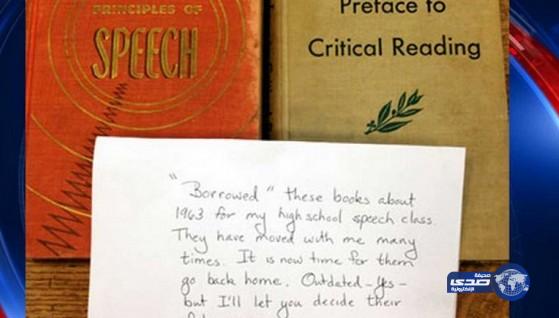 PRINCIPLES OF
SPEECH
Preface to
Critical Reading
"Borrowed" these books about
1963 for my high school speech class.
They have moved with me many
times. It is now time for them
go back home. Outdated - yes -
but I'll let you decide their
صحيفة
صدى
الإلكترونية